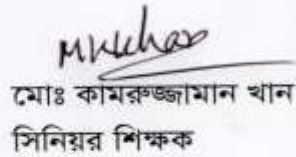 মোঃ কামরুজ্জামান খান
সিনিয়র শিক্ষক